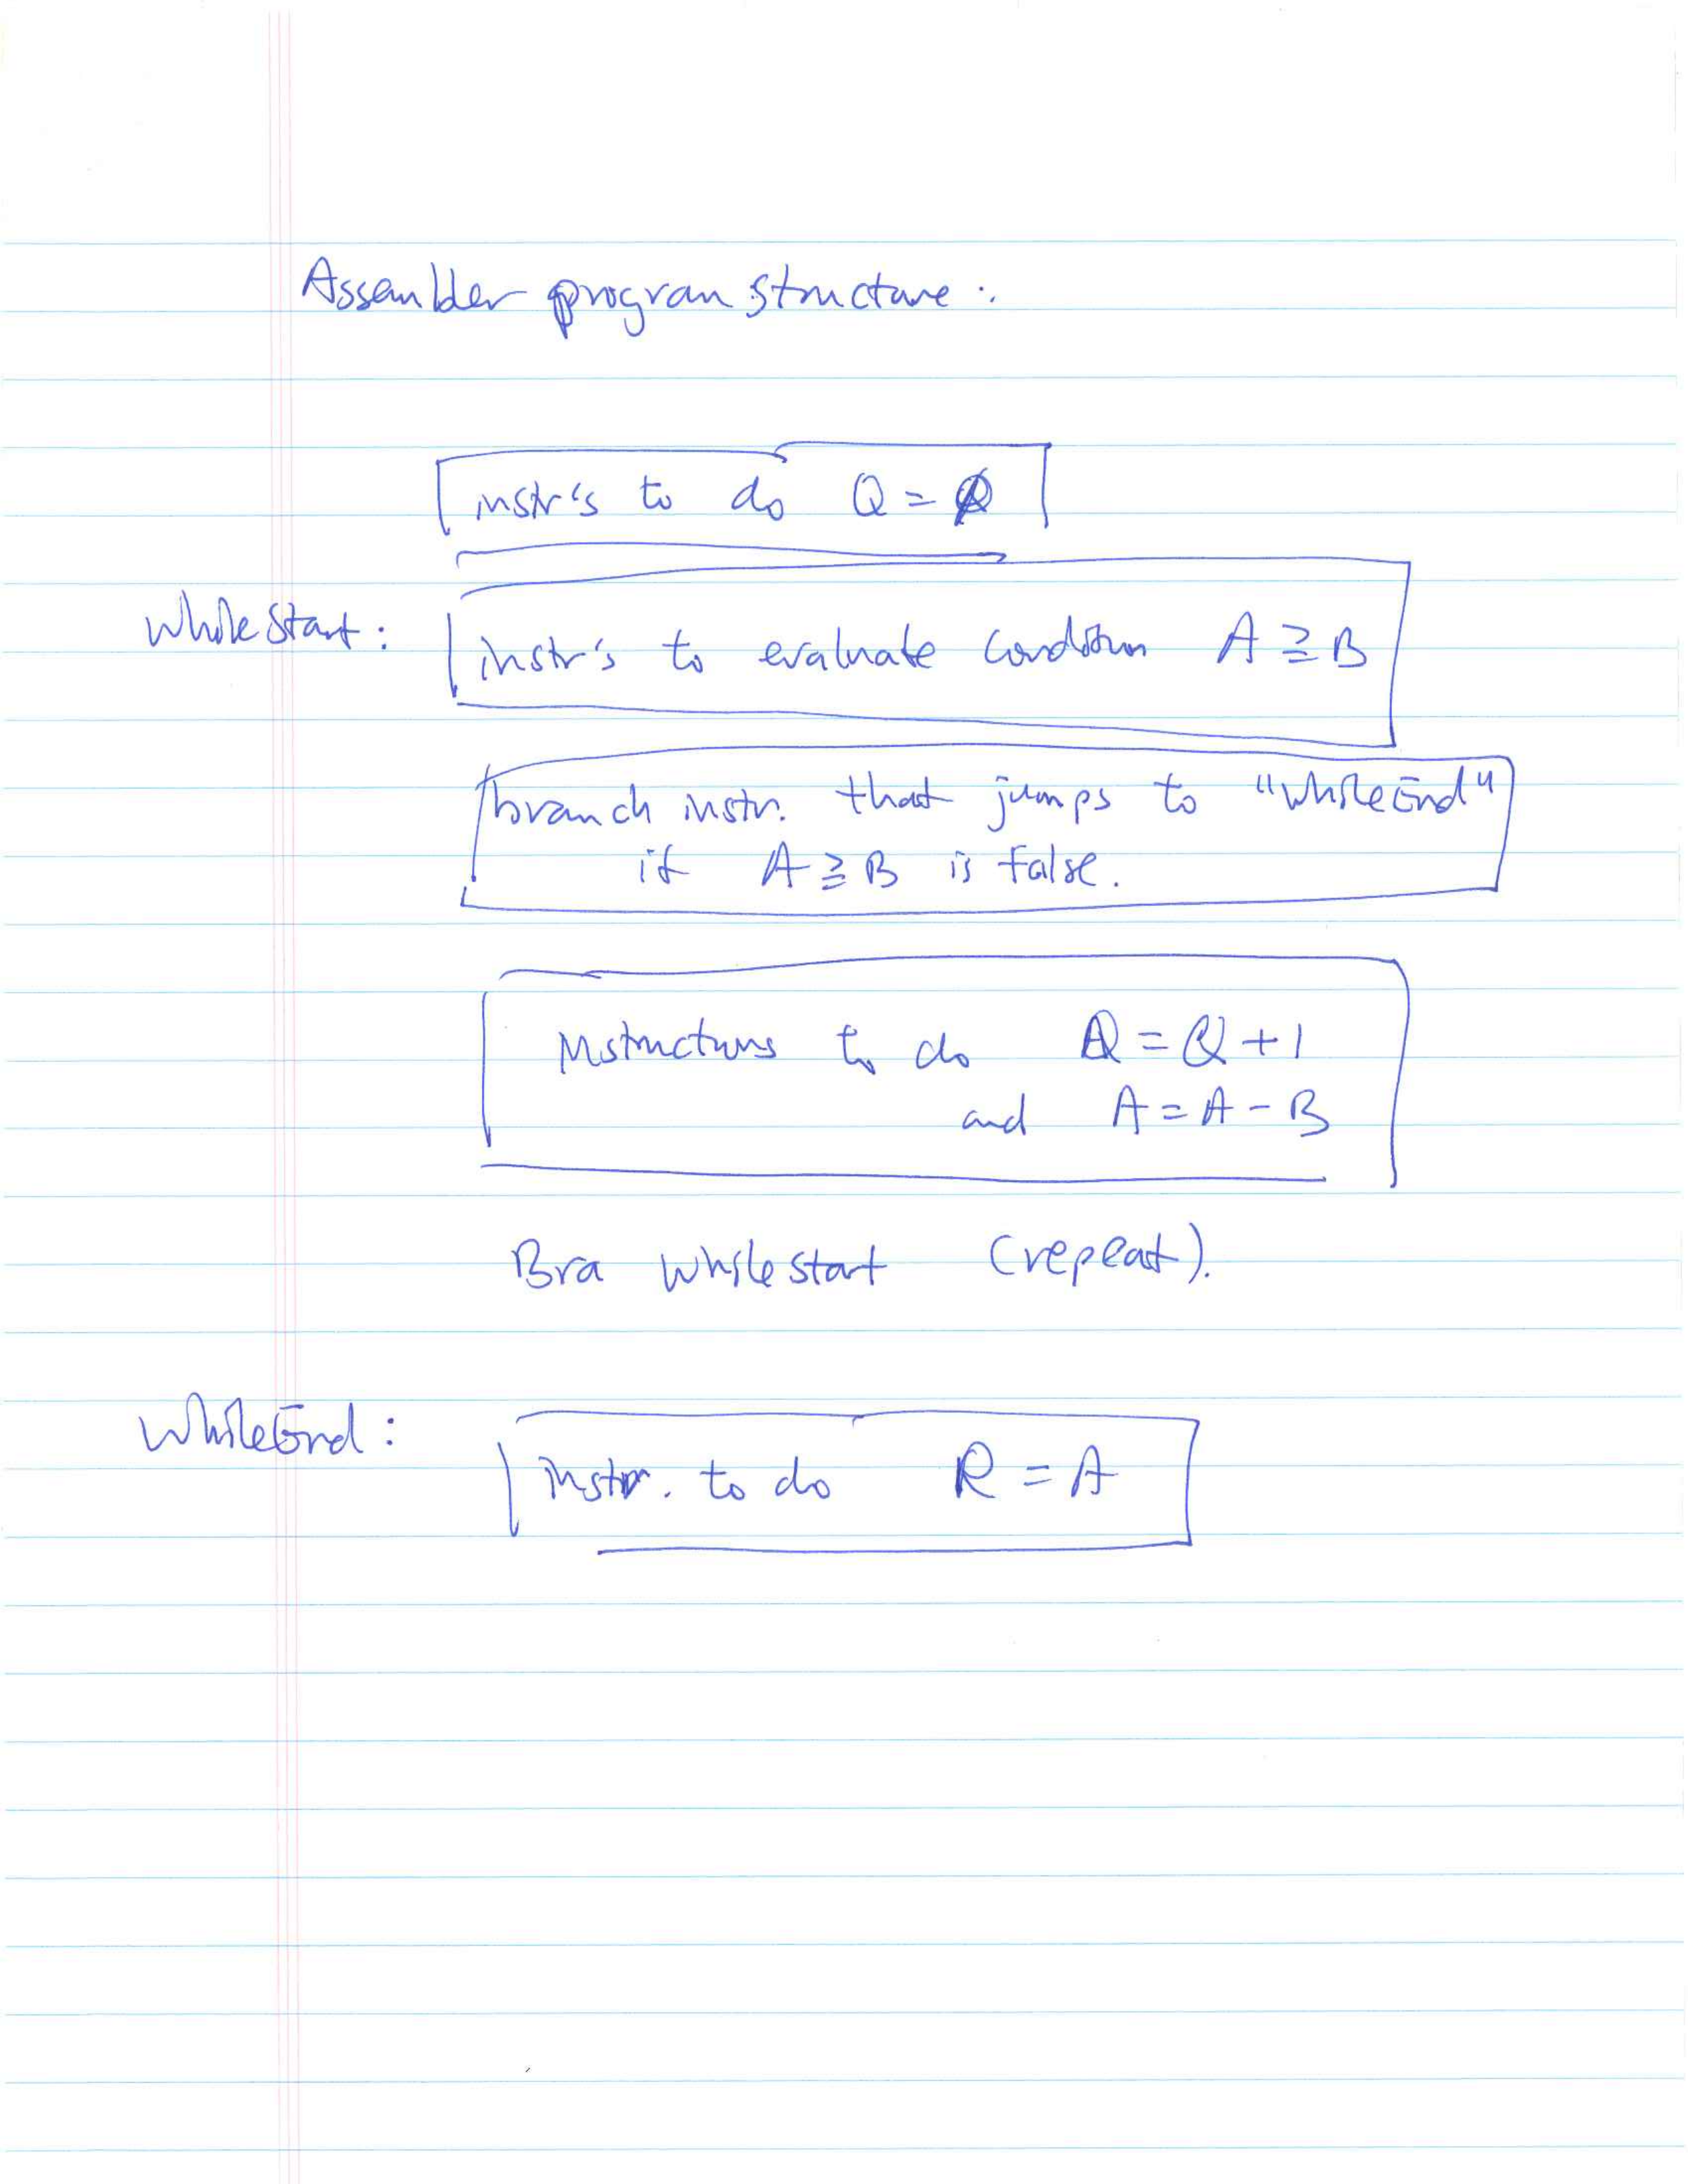 Assembler program structure:
instr's to do Q = 0
WhileStart: instr's to evaluate condition A ≥ B
branch instr. that jumps to "WhileEnd"
if A ≥ B is false.
Instructions to do Q = Q + 1
and A = A - B
Bra whilestart (repeat).
WhileEnd: instr. to do R = A